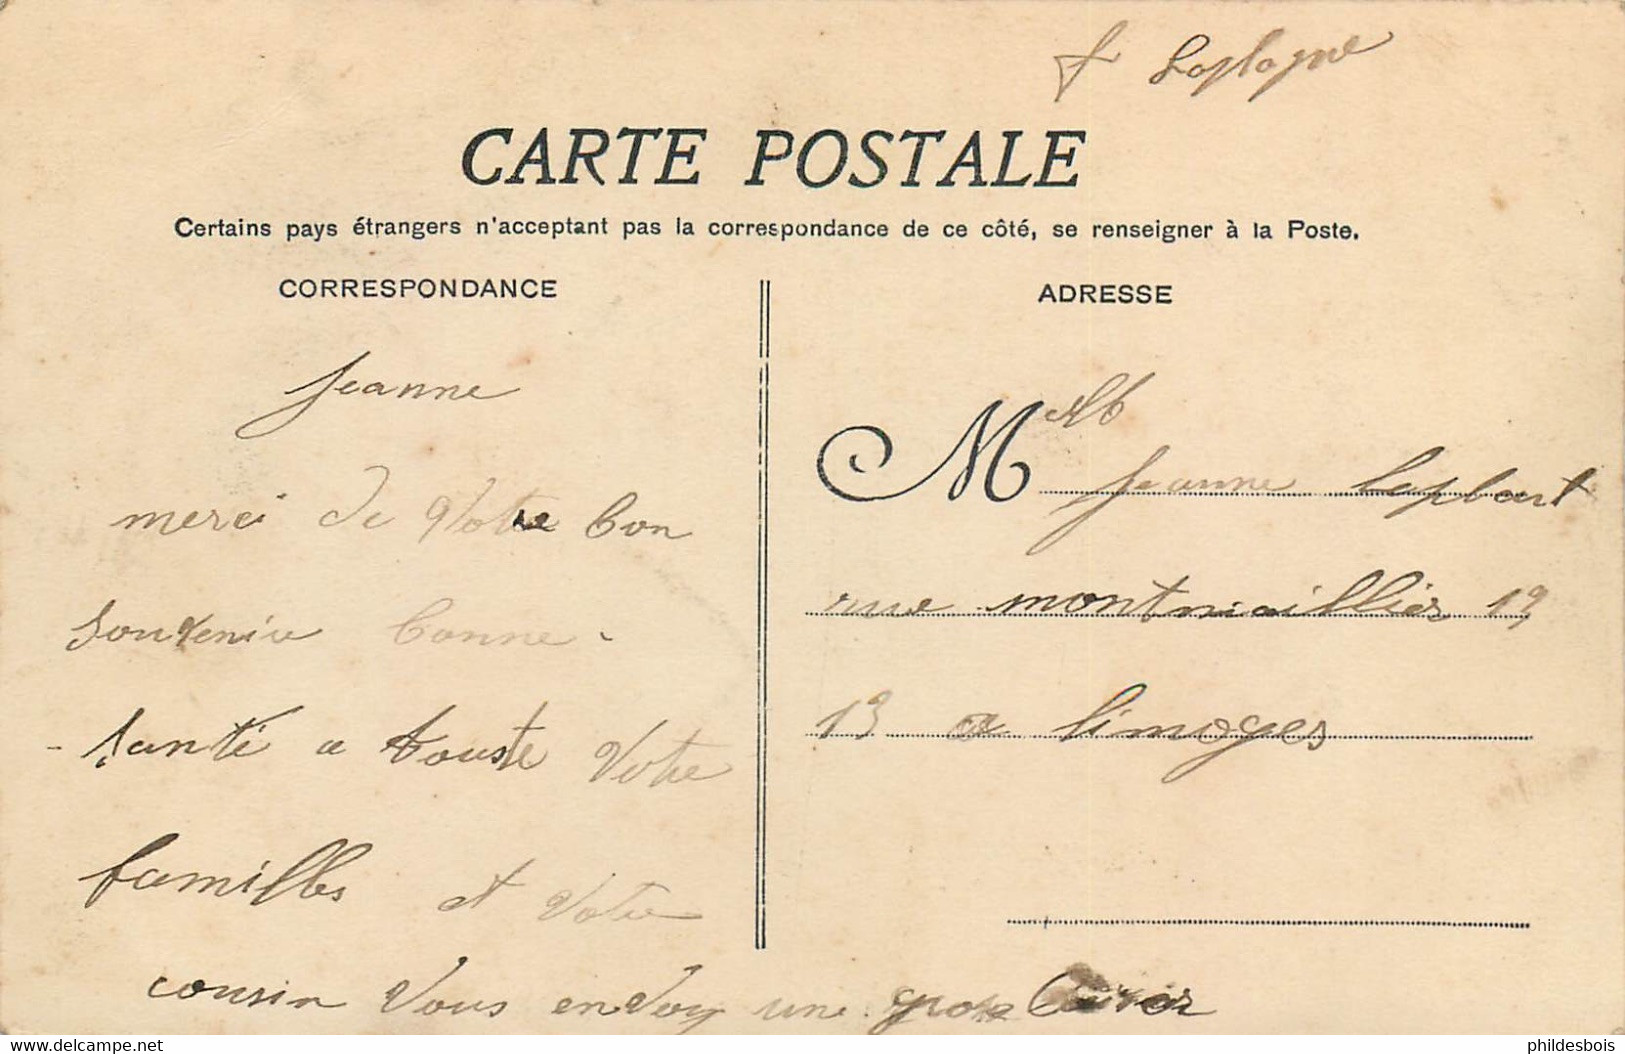 f Laplagne
CARTE POSTALE
Certains pays étrangers n'acceptant pas la correspondance de ce côté, se renseigner à la Poste.
CORRESPONDANCE
Jeanne
merci de Votre bon
souvenir bonne
santé a touste Votre
familles et Votre
cousin Vous envoy une gros
ADRESSE
M elle
Jeanne
rue montmaillier 19
13 a limoges
https://www.delcampe.net
phildesbois